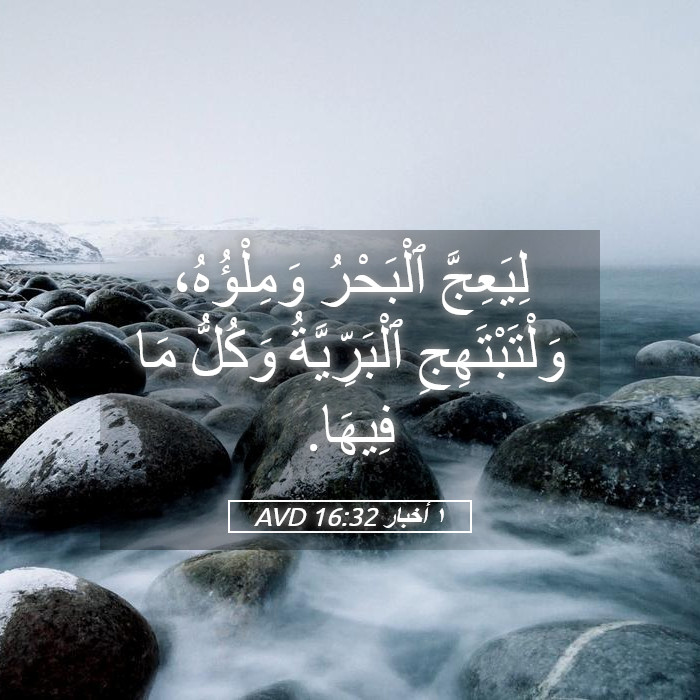 لِيَعِجَّ ٱلْبَحْرُ وَمِلْؤُهُ،
وَلْتَبْتَهِجِ ٱلْبَرِّيَّةُ وَكُلُّ مَا
فِيهَا.
١ أخبار 16:32 AVD